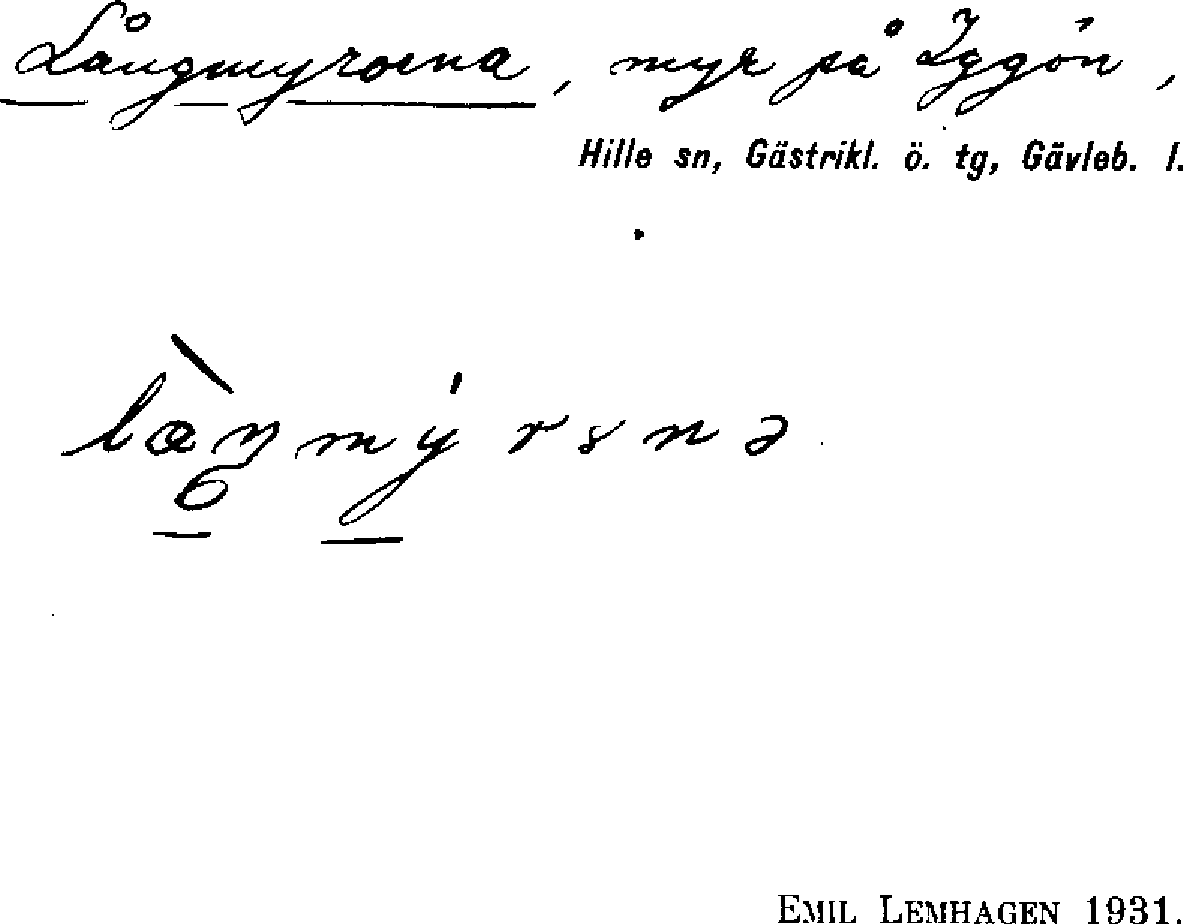 Långmyrorna, myr på Iggön,
Hille sn, Gästrikl. ö. tg, Gävleb. l.
EMIL LEMHAGEN 1931.